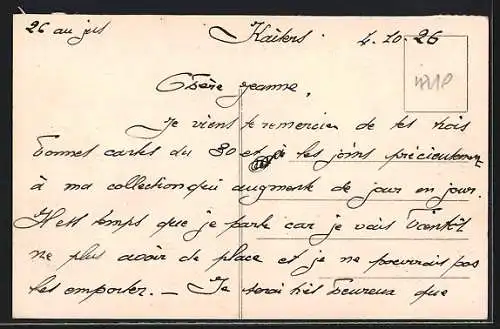 26 au jus Kaiters. 4-10-26
Chère Jeanne,
Je viens te remercier de tes trois
bonnes cartes du 30 et je les joins précieusement
à ma collection qui augmente de jour en jour.
Il est temps que je parte car je vais bientôt
ne plus avoir de place et je ne pourrais pas
les emporter. — Je serai très heureux que